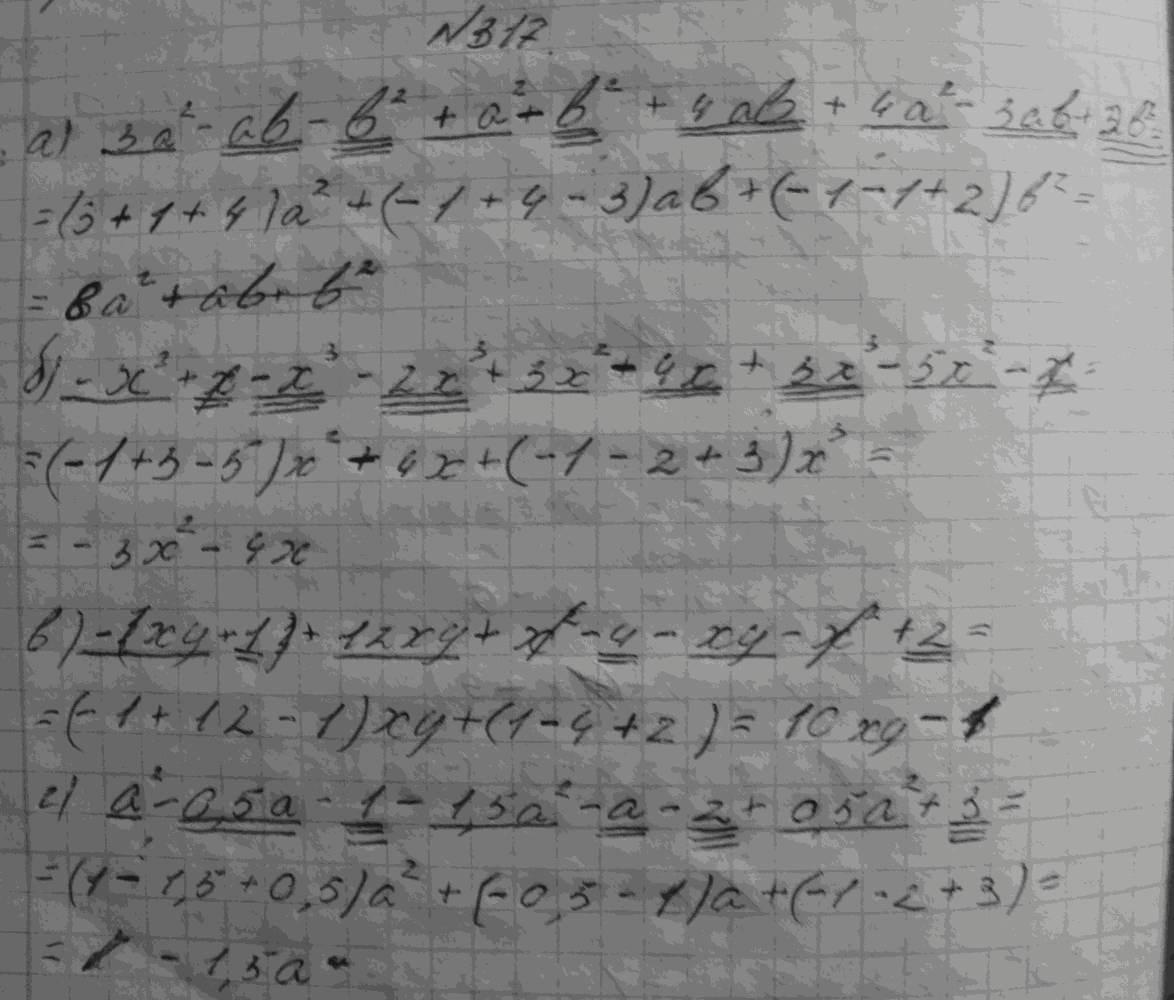 №317.
а) 3a² - ab - b² + a² - b² + 4ab + 4a² - 3ab + 2b² =
= (3 + 1 + 4)a² + (-1 + 4 - 3)ab + (-1 - 1 + 2)b² =
= 8a²
б) -x³ + x - x³ - 2x³ + 3x² - 4x + 3x³ - 5x² - x =
= (-1 + 3 - 5)x² - 4x + (-1 - 2 + 3)x³ =
= -3x² - 4x
в) -1xy + 1 + 12xy + x² - 4 - xy - x² + 2 =
= (-1 + 12 - 1)xy + (1 - 4 + 2) = 10xy - 1
г) a² - 0,5a - 1 - 1,5a² - a - 2 + 0,5a² + 3 =
= (1 - 1,5 + 0,5)a² + (-0,5 - 1)a + (-1 - 2 + 3) =
= - 1,5a